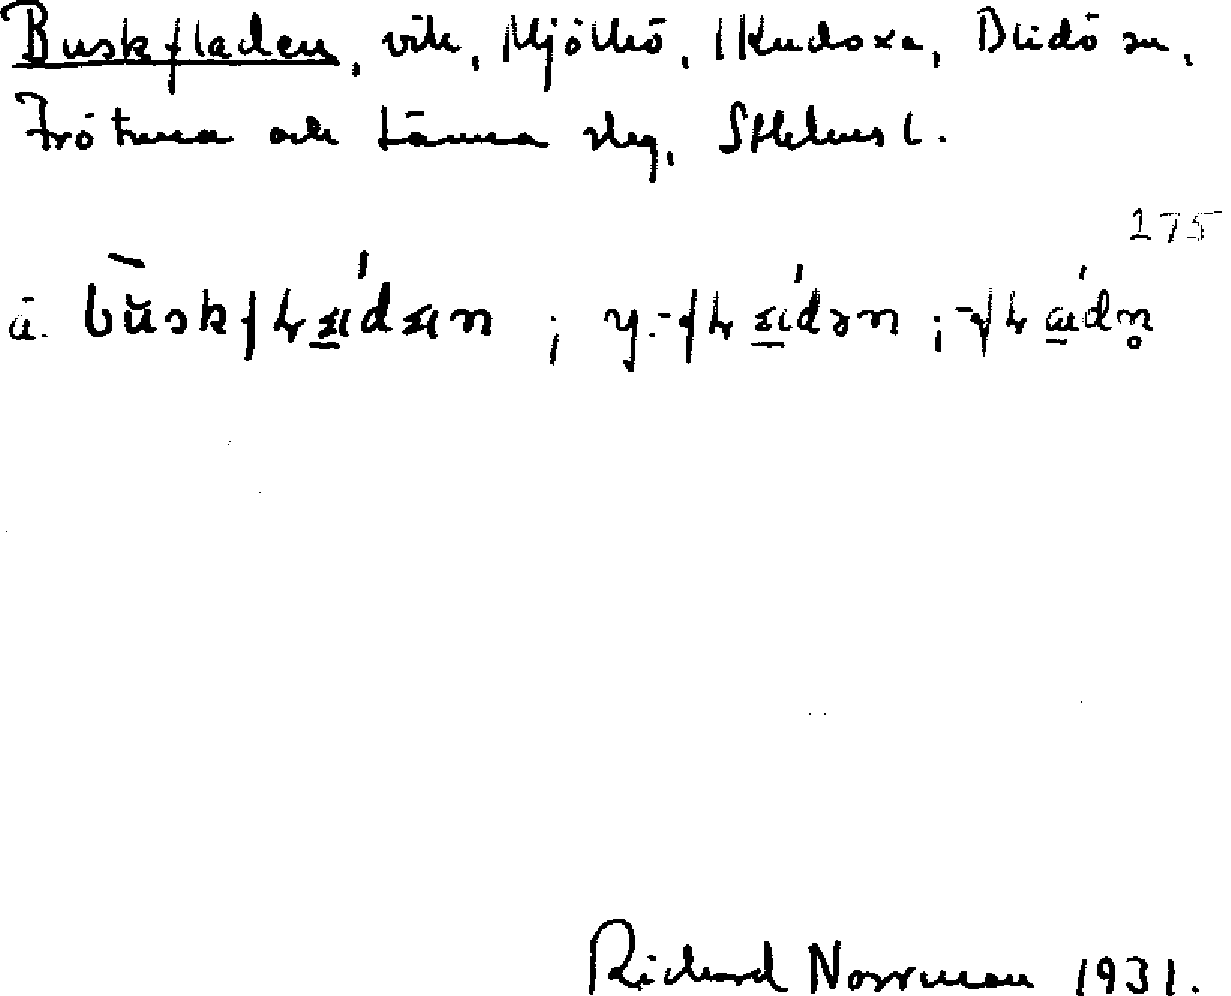 Buskfladen, vik, Mjölkö, Blidö sn,
Frötuna och Länna skg, Sthlms l.
175
ä. bùskfɫa̱'dan ; y. -fɫa̱'dən ; -fɫa̱'dn̥
Richard Norrman 1931.